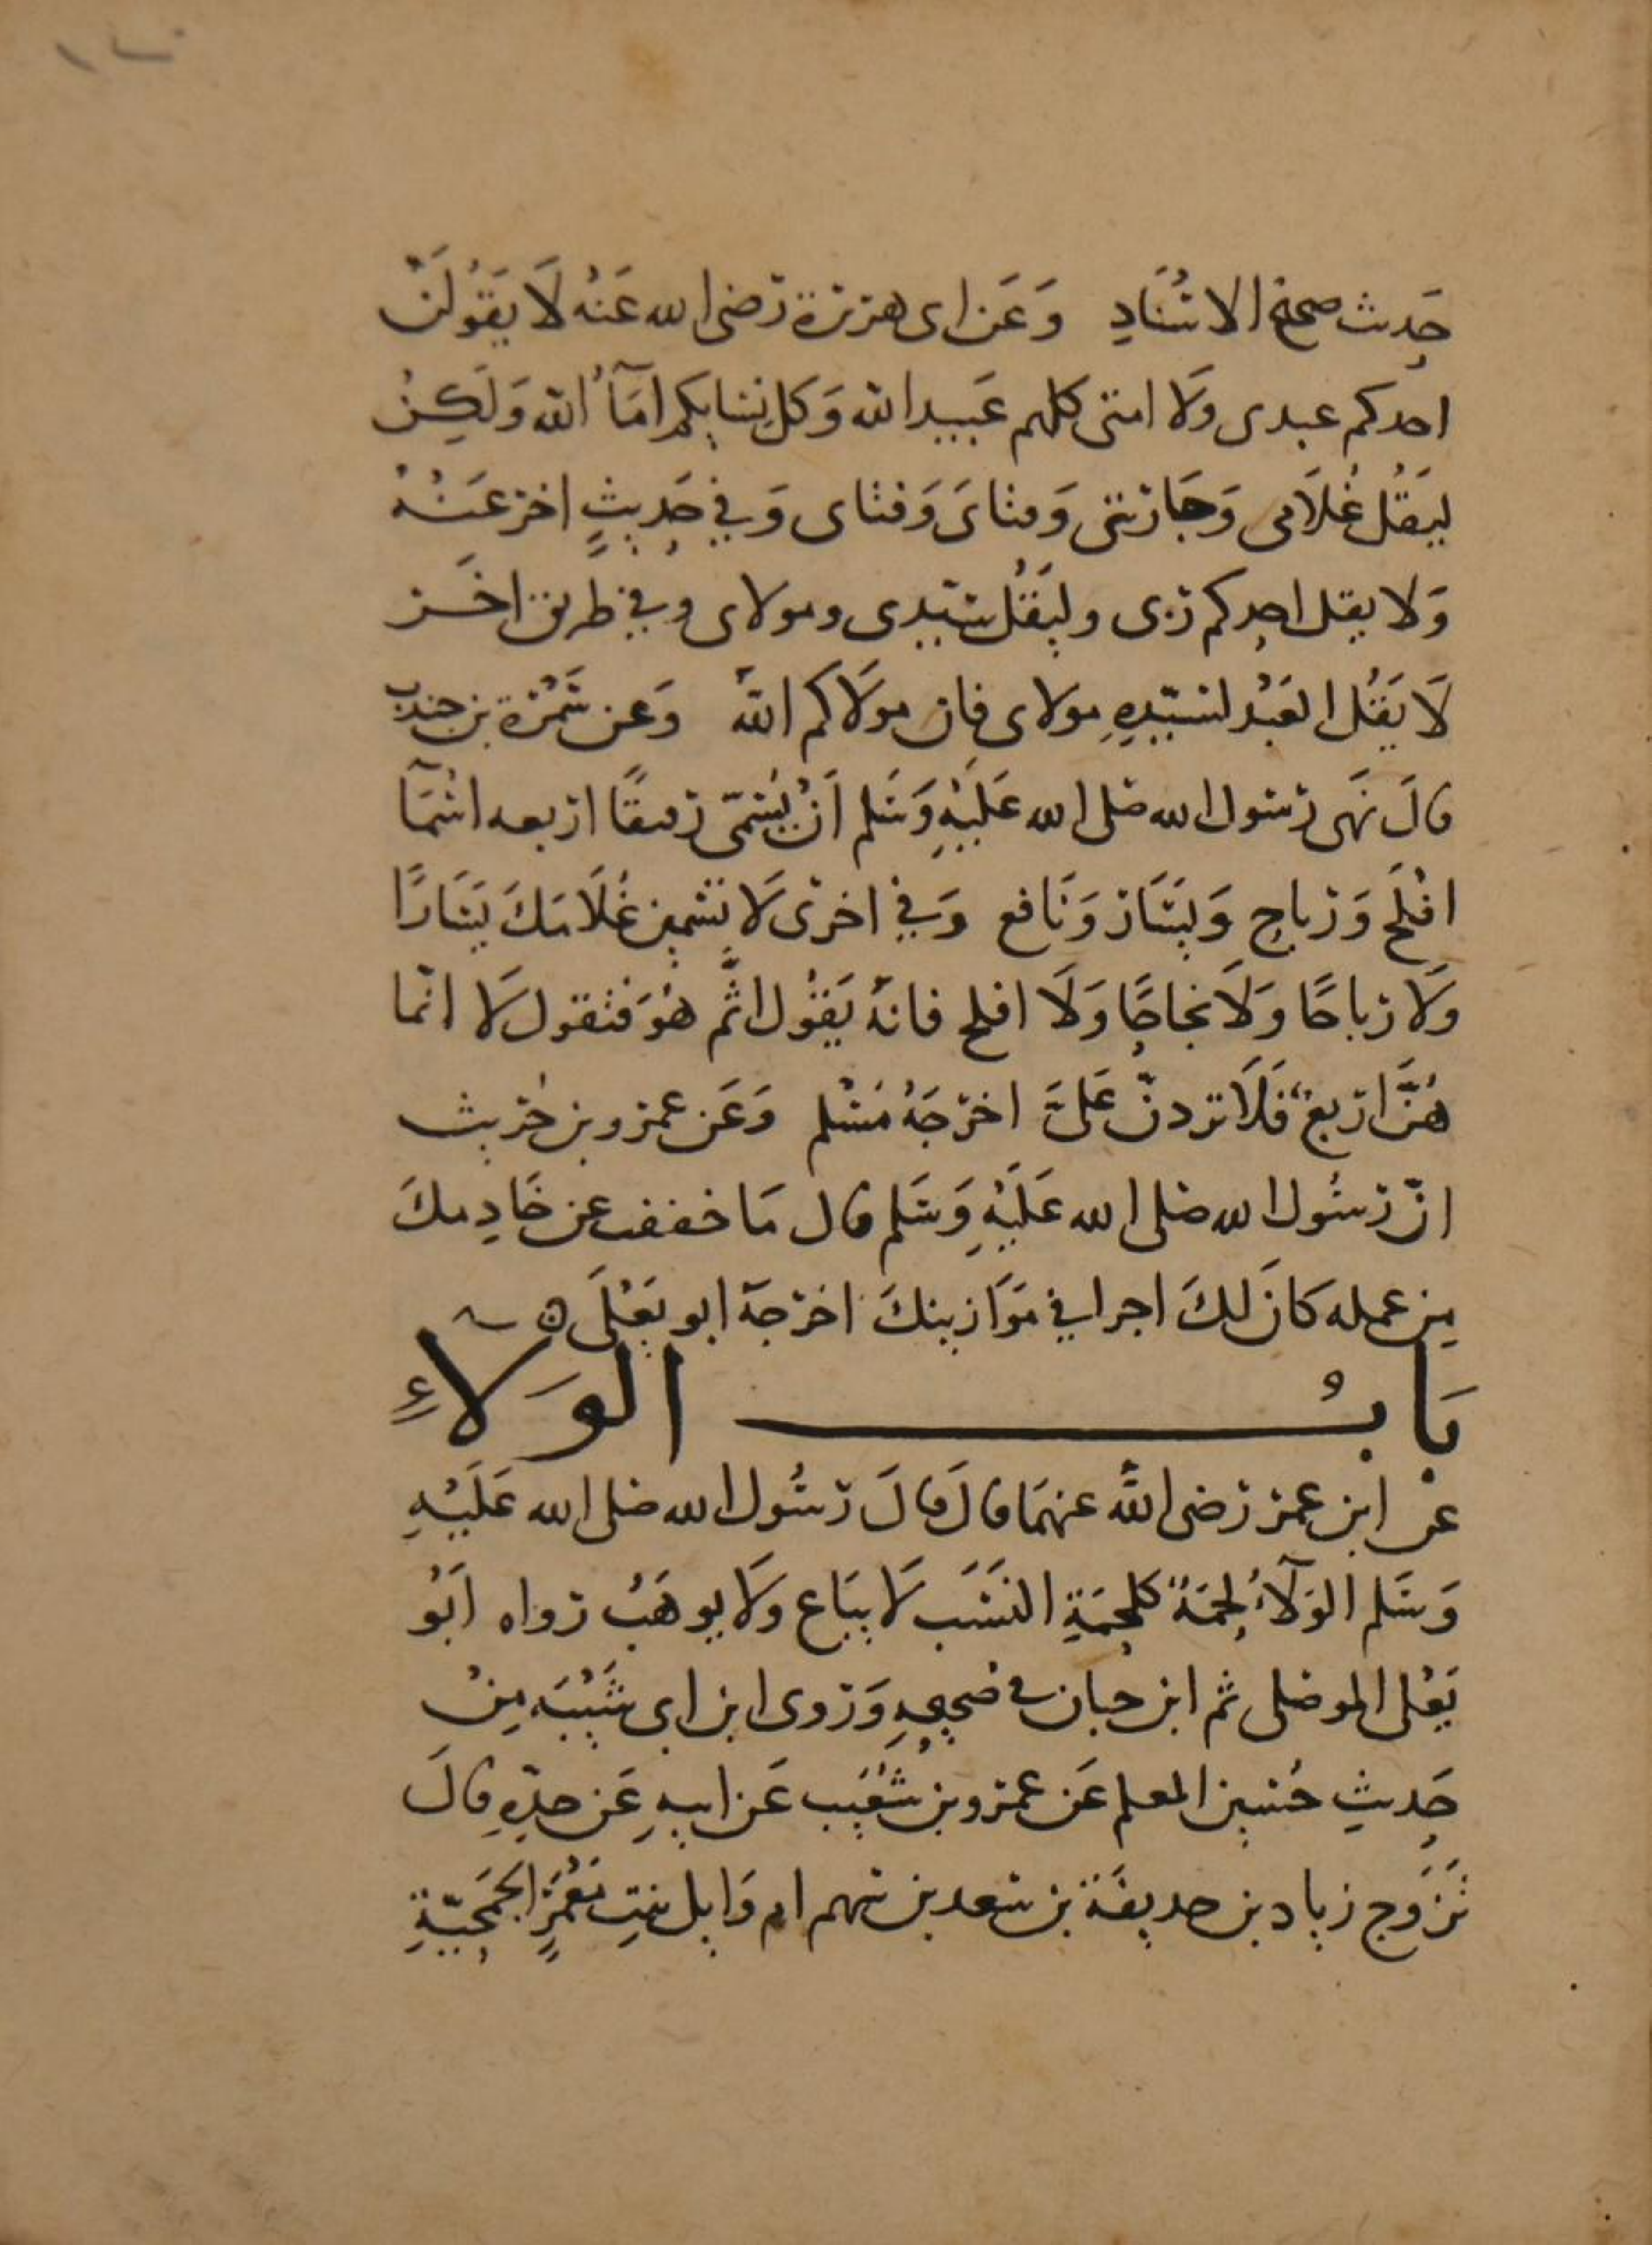 حَدِيث صحيح الاسْنَادِ وَعَن ابى هريرة رضى الله عَنْه لَا يَقُولَنْ
احدكم عبدى وَلَا امتى كلهم عَبيد الله وَكل نسايكم امَآُ الله وَلَكِنْ
ليَقُل غُلَامى وَجَارتتى وَفتاىَ وَفتاى وَفي حَدِيثٍ اخر عَنْهُ
وَلا يقل احدكم ربى وليَقُل سَيّدى ومولاى وفي طريق اخَر
لَا يَقُل العَبْد لسَيّدِهِ مولاى فان مولَاكم اللهُ وَعن سَمُرَة بن جندب
قالَ نَهَى رَسول الله صلى الله عَلَيْهِ وَسَلم اَنْ يُسَمّى رقيقًا اربعه اسْمَآ
افْلَح وَرباح وَيسَار وَنَافع وَفي اخرَى لَا تسَمين غُلَامَكَ يَسَارًا
وَلَا رباحًا وَلَا نجاحًا وَلَا افلح فانهُ يَقُول اثَم هُوَ فتقول لَا انّما
هُنَّ اربعٌ فَلَا تردنّ عَلىَّ اخرَجَهُ مُسْلم وَعَن عمرو بن حُريث
انّ رَسُول الله صلى الله عَلَيْهِ وَسَلم قال مَا خففت عن خَادِمكَ
مِن عمله كَانَ لكَ اجرا في مَوَازينكَ اخرَجهُ ابو يَعْلَى ٥
بَابُ الوَلَاءِ
عَنْ ابن عمر رَضى اللهُ عنهمَا قالَ قالَ رَسُول الله صلى الله عَلَيْهِ
وَسَلم الوَلَآءُ لحمَةٌ كلحمَةِ النسَب لَا يبَاع وَلَا يوهَبُ رواه ابُو
يَعْلى الموصلى ثم ابن حبان في صَحيحِهِ وَرَوى ابن ابى شَيْبَه مِنْ
حَديثِ حُسَين المعلم عَن عمرو بن شُعَيب عَن ابيهِ عَن جدّهِ قالَ
تَزَوج زياد بن حديفَة بن سَعد بن سَهم ام وَايل بنتِ مَعْمَرٍ الجُمَحيّةِ